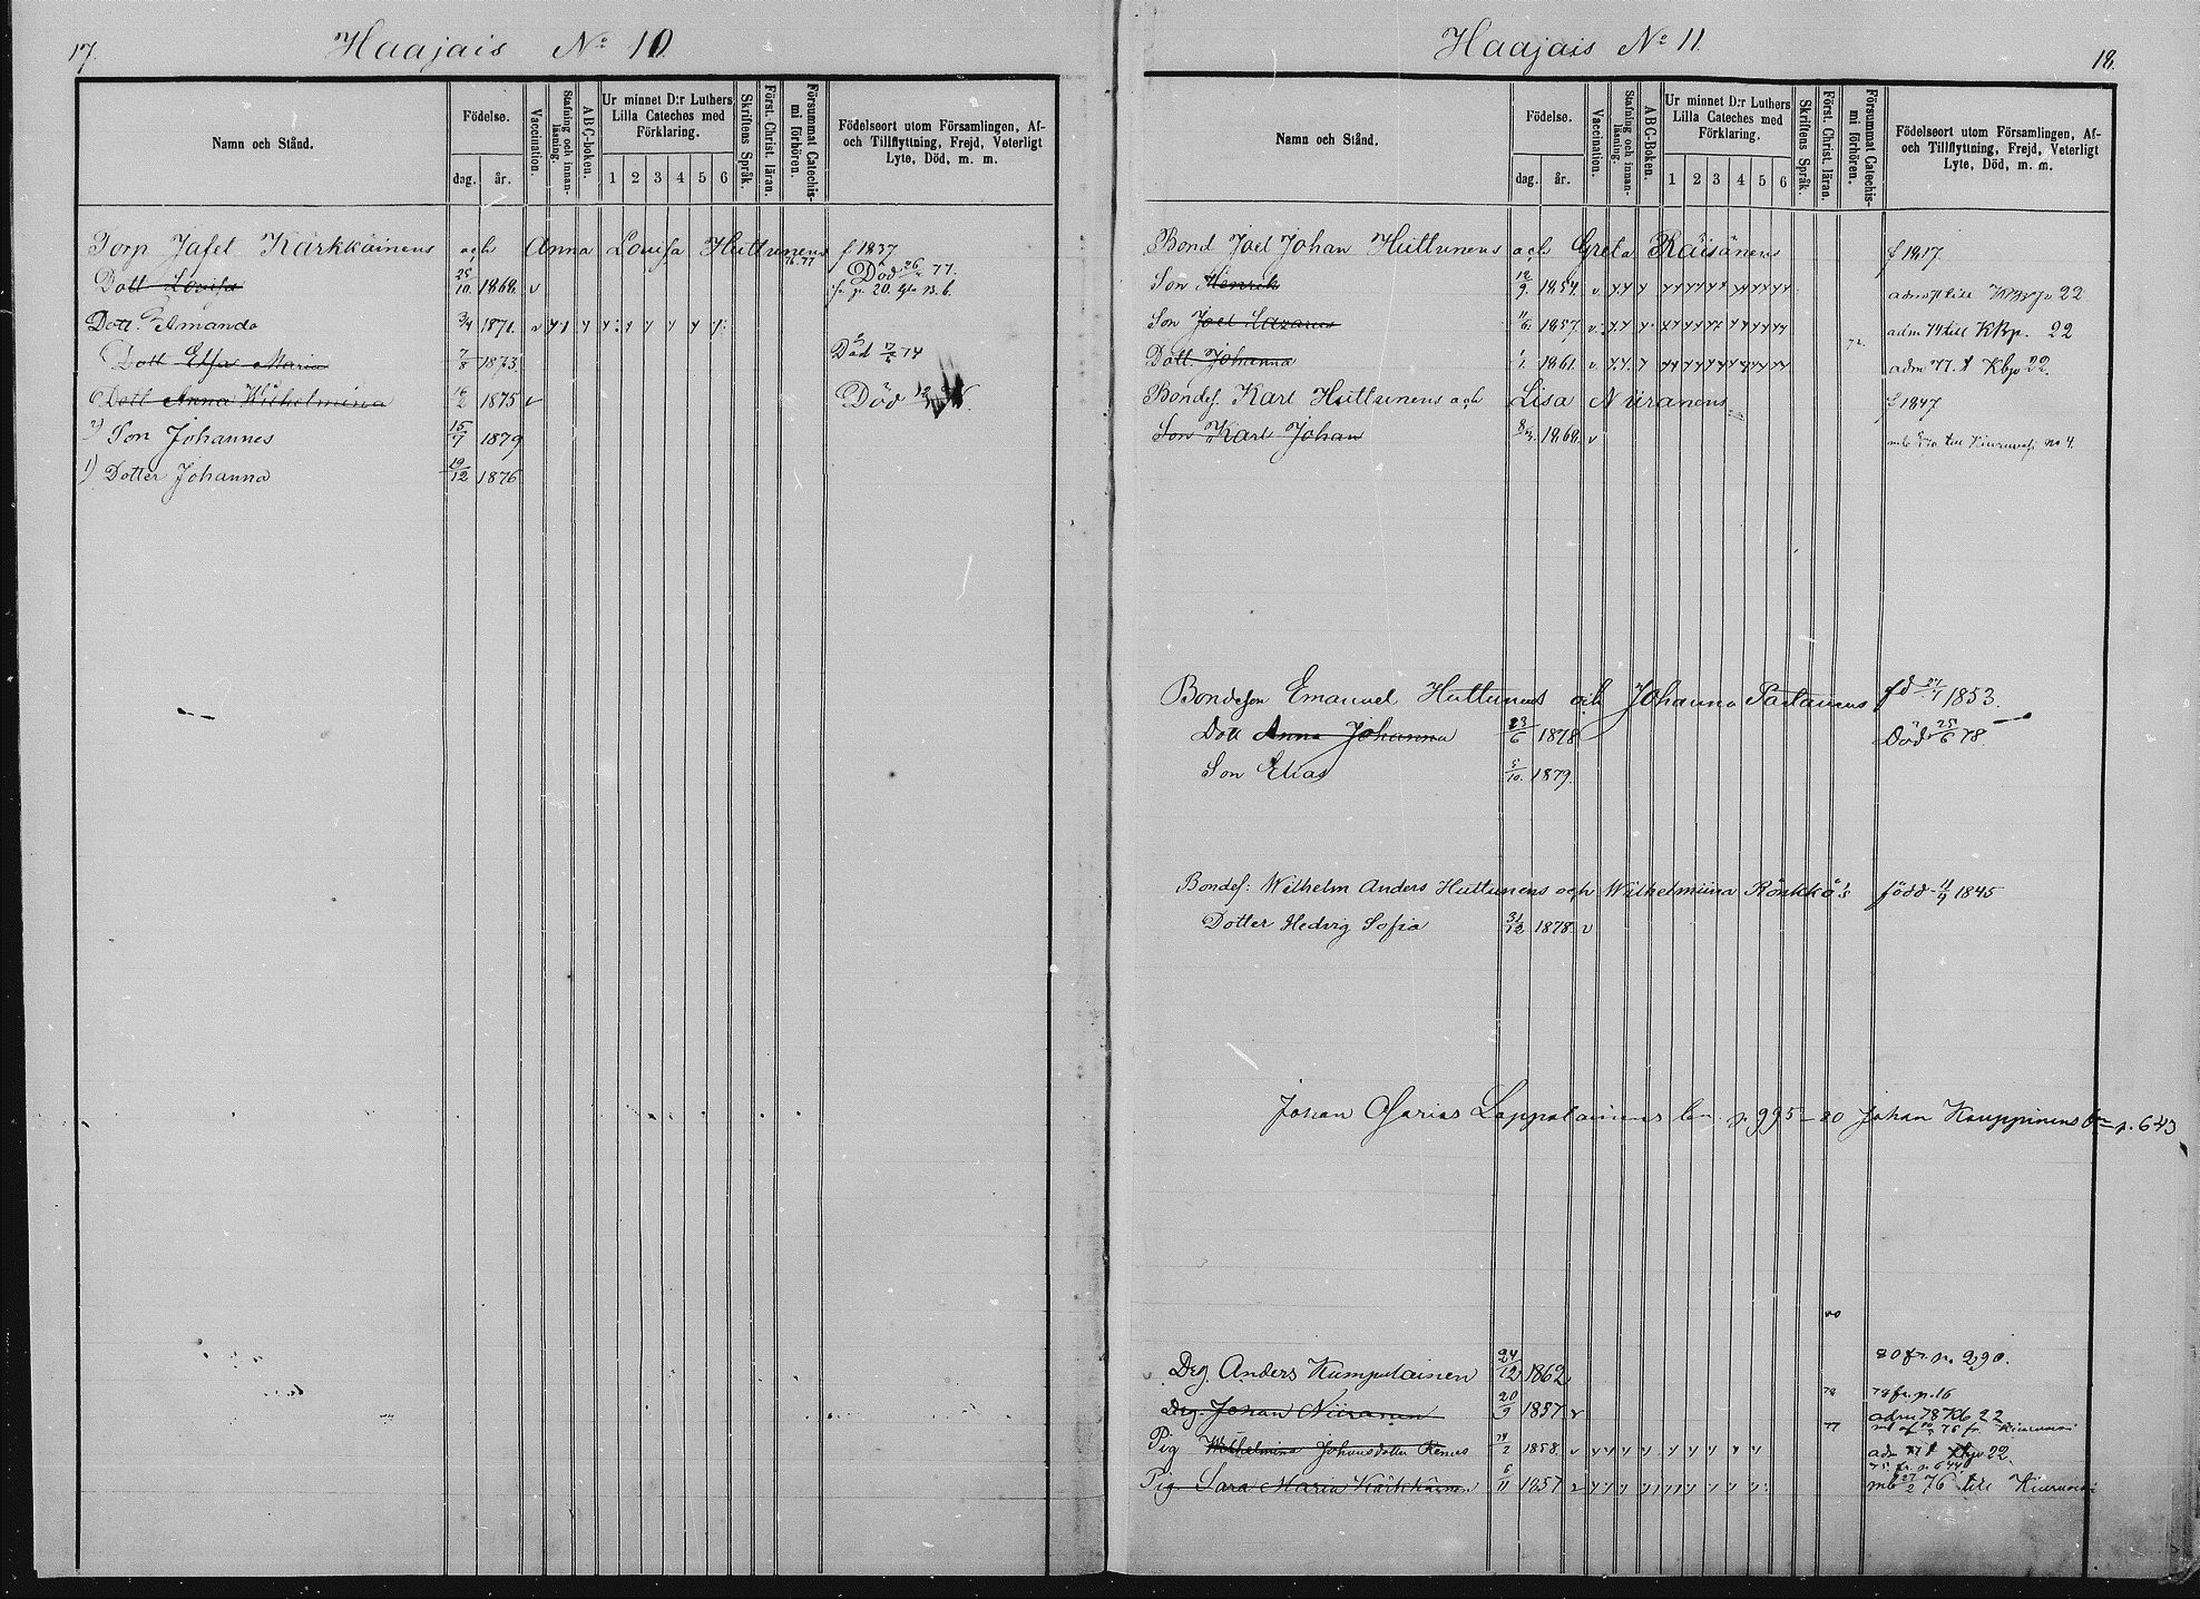 17.
Haajais No 10
Namn och Stånd.
Födelse.
dag.
år.
Vaccination.
Stafning och innan-läsning.
A B C-boken.
Ur minnet D:r Luthers Lilla Cateches med Förklaring.
1 2 3 4 5 6
Skriftens Språk.
Först. Christ. läran.
Försummat Catechis-mi förhören.
Födelseort utom Församlingen, Af- och Tillflyttning, Frejd, Veterligt Lyte, Död, m. m.
Torp Jafet Kärkkäinens och Anna Lovisa Huttunens 76.77 f 1837
Dott Lovisa 25/10. 1868. v Död 26/ 77.
Dott. Amanda 3/4 1871. v
Dott Elsa Maria 7/8 1873. Död 74
Dott Anna Wilhelmina 16/2 1875 v Död
2) Son Johannes 15/7 1879
1) Dotter Johanna 19/12 1876
Haajais No 11
18.
Namn och Stånd.
Födelse.
dag.
år.
Vaccination.
Stafning och innan-läsning.
A B C-Boken.
Ur minnet D:r Luthers Lilla Cateches med Förklaring.
1 2 3 4 5 6
Skriftens Språk.
Först. Christ. läran.
Försummat Catechis-mi förhören.
Födelseort utom Församlingen, Af- och Tillflyttning, Frejd, Veterligt Lyte, Död, m. m.
Bond Joel Johan Huttunens och Greta Räisänens f 1817.
Son Henrik 12/9. 1854. v. 22
Son Joel Lazarus 11/6. 1857. v. adm 74 till KBp. 22
Dott. Johanna 1861. v. adm 77. t Kbp 22.
Bondes. Karl Huttunens och Lisa Niiranens f 1847
Son Karl Johan 1868. v till Kiuruvesi no 4.
Bondeson Emanuel Huttunens och Johanna Partanens fd 1853.
Dott Anna Johanna 23/6 1878 Död 25/6 78.
Son Elias 5/10. 1879.
Bondes: Wilhelm Anders Huttunens och Wilhelmiina Rönkkö's född 11/9 1845
Dotter Hedvig Sofia 31/12 1878. v
Johan Lappalainens p. 995 – 80 Johan Kauppinens p. 643
80
Drg. Anders Kumpulainen 24/12 1862 80 fr. p. 290.
Drg. Johan Niiranen 20/9 1857 v 78 78 fr. p. 16
adm 78 Kb 22
Pig Wilhelmina Johansdotter 1858. v 77 76 fr. Kiuruvesi
22.
Pig Sara Maria Kärkkäinen 6/11 1857 v mb 27/2 76 till Kiuruvesi